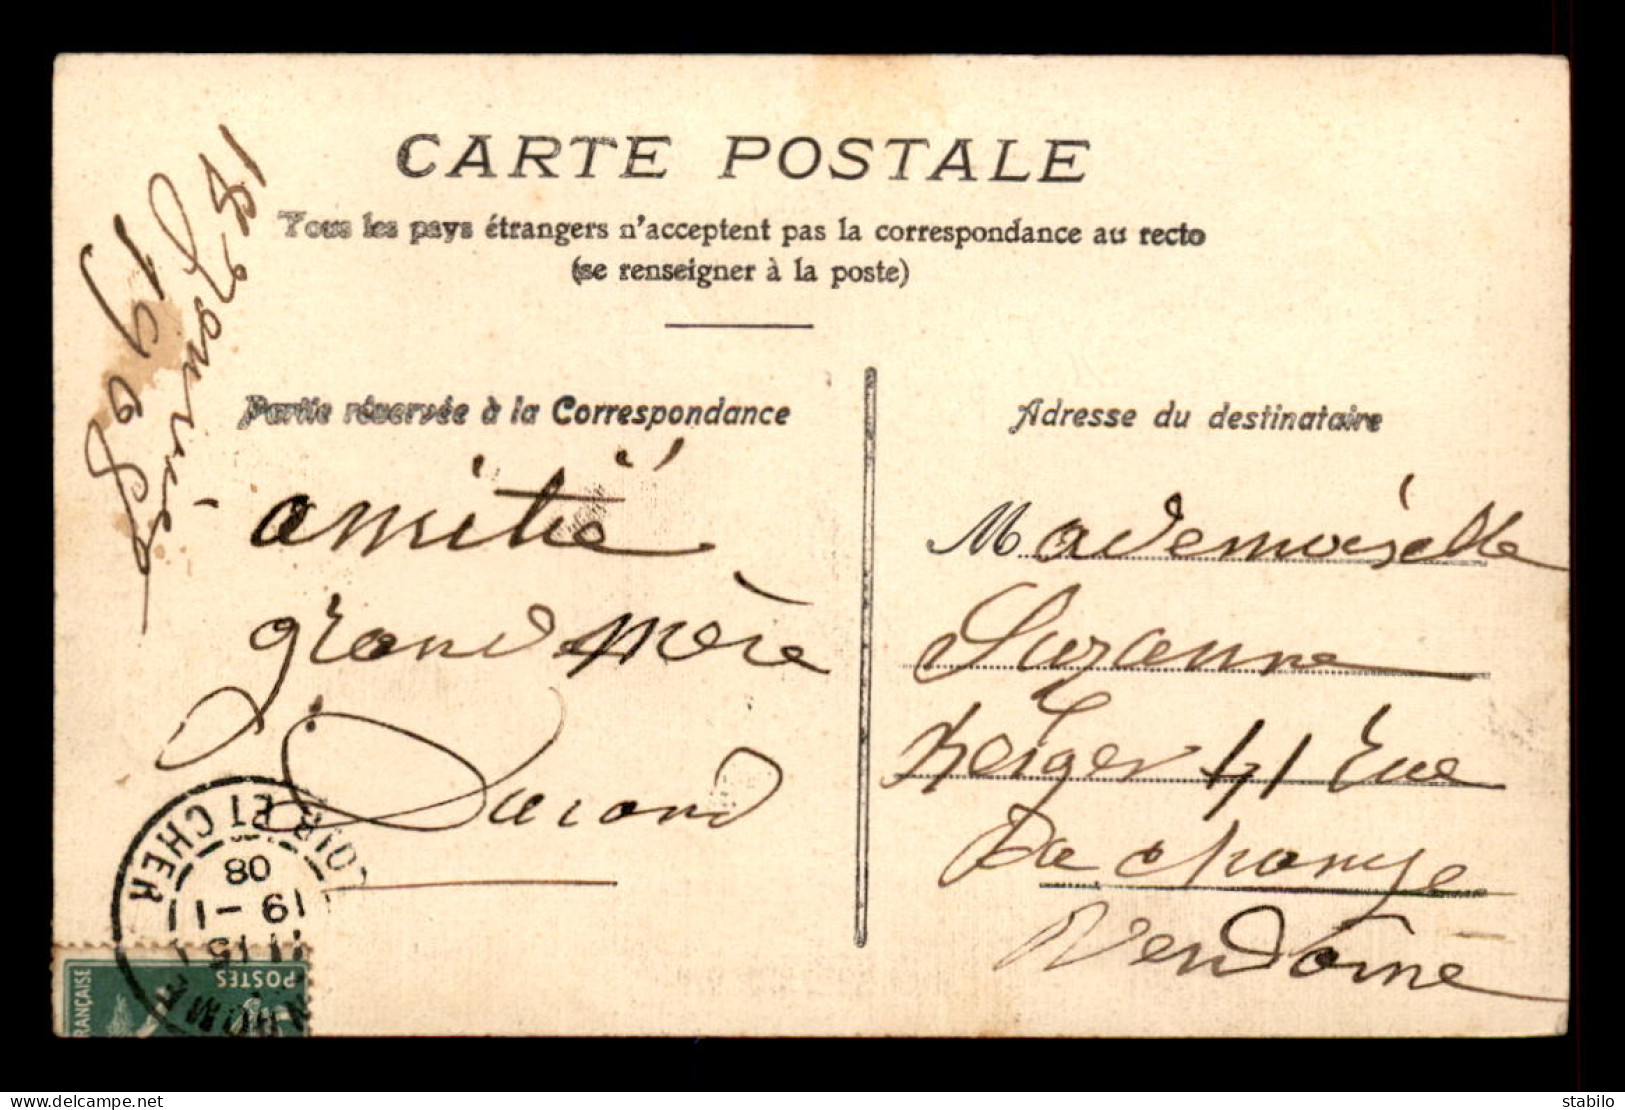 CARTE POSTALE
Tous les pays étrangers n'acceptent pas la correspondance au recto
(se renseigner à la poste)
Partie réservée à la Correspondance
Adresse du destinataire
18 Janvier
1908
amitié
grand mère
Durand
Mademoiselle
Suzanne
41 rue
Du change
Vendome
LOIR ET CHER
08
19 - 1
11 15
POSTES
FRANÇAISE
delcampe.net
stabilo